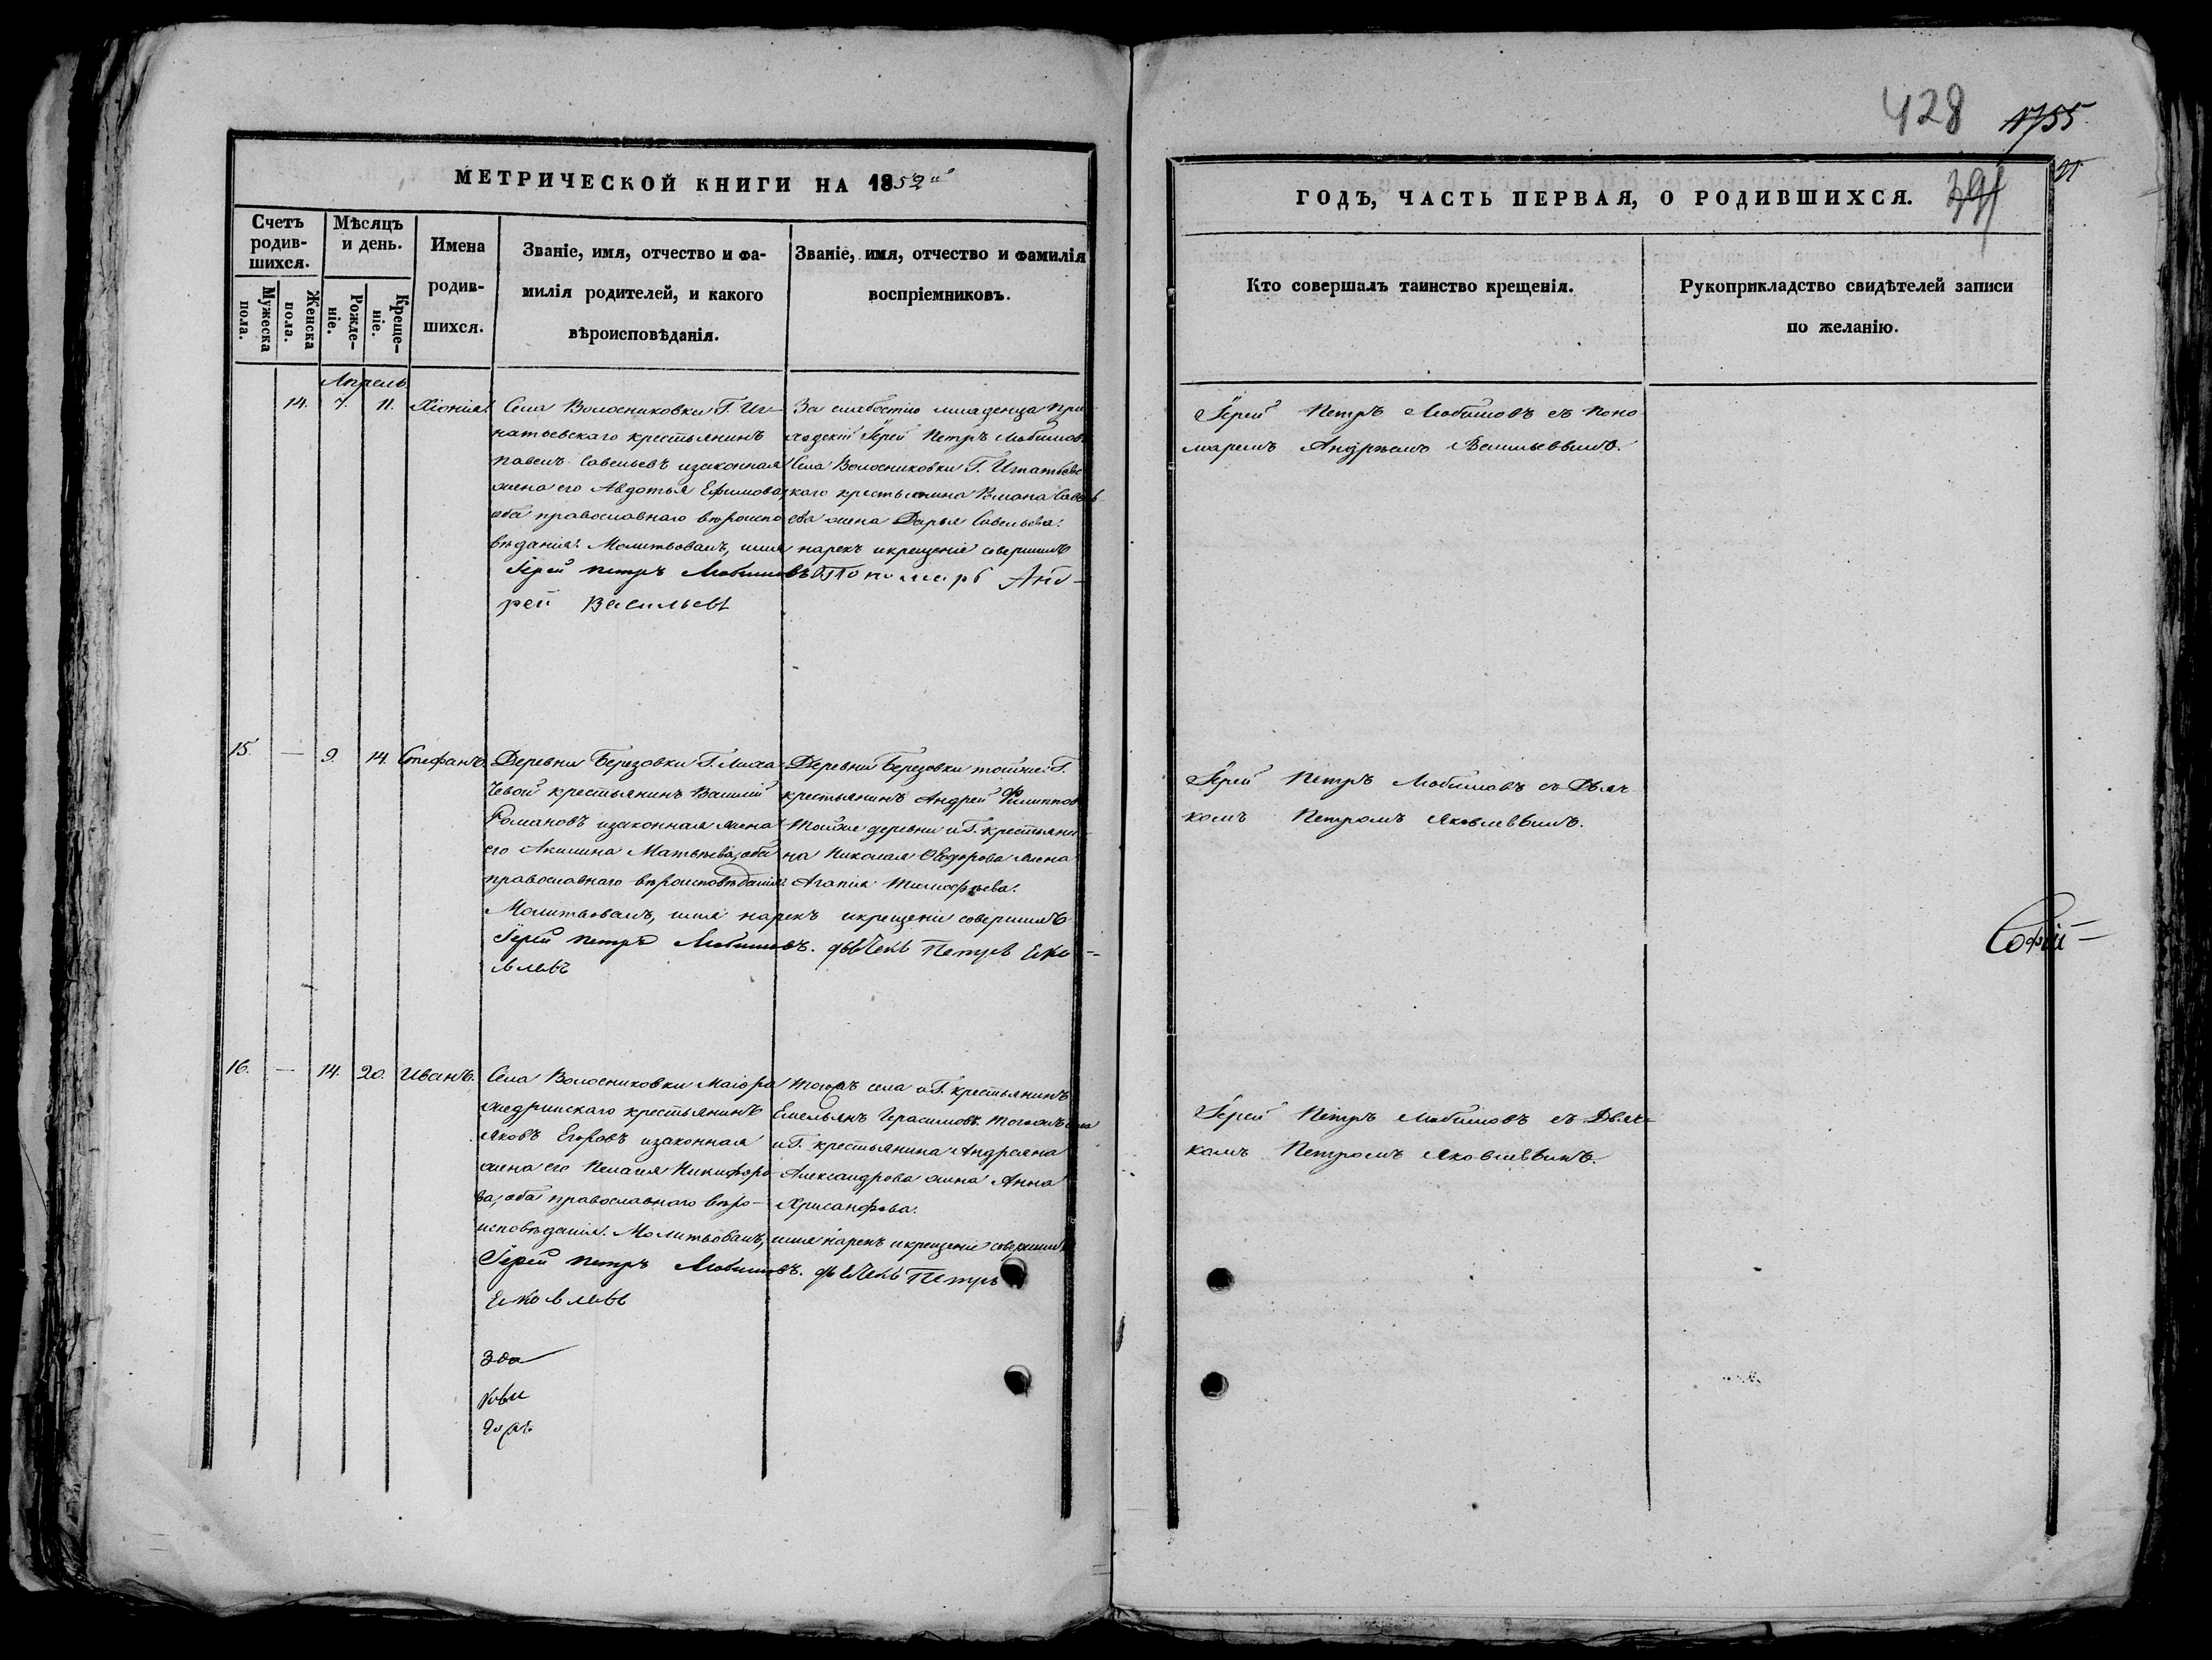 428 1755
21
391
МЕТРИЧЕСКОЙ КНИГИ НА 1852й
ГОДЪ, ЧАСТЬ ПЕРВАЯ, О РОДИВШИХСЯ.
Счетъ родив-шихся.
Мужеска пола.
Женска пола.
Мѣсяцъ и день.
Рожде-ніе.
Креще-ніе.
Имена
родив-
шихся.
Званіе, имя, отчество и фа-
милія родителей, и какого
вѣроисповѣданія.
Званіе, имя, отчество и фамилія
воспріемниковъ.
Кто совершалъ таинство крещенія.
Рукоприкладство свидѣтелей записи
по желанію.
Апрель
14. 7. 11. Хіонія.
Села Волосниковки Г. Иг-
натьевскаго крестьянинъ
Павелъ Савельевъ изаконная
жена его Авдотья Ефимова,
оба православнаго вѣроиспо
вѣданія. Молитвовалъ, имя нарекъ икрещеніе совершилъ
Іерей Петръ Любимовъ Пономарь Анд-
рей Васильевъ
За слабостію младенца При
ходскій Іерей Петръ Любимовъ
Села Волосниковки Г. Игнатьевс
каго крестьянина Романа Савель
ева жена Дарья Савельева.
Іерей Петръ Любимовъ съ Поно
маремъ Андреемъ Васильевымъ.
15. — 9. 14. Стефанъ.
Деревни Березовки Г. Лиха
чевой крестьянинъ Василій
Романовъ изаконная жена
его Акилина Матвѣева, оба
православнаго вѣроисповѣданія.
Молитвовалъ, имя нарекъ икрещеніе совершилъ
Іерей Петръ Любимовъ. дьячекъ Петръ Яко-
влевъ
Деревни Березовки тойже Г.
крестьянинъ Андрей Филиппов
тойже деревни иГ. крестьяни-
на Николая Ѳеодорова жена
Агапія Тимофѣева.
Іерей Петръ Любимовъ съ Дьяч
комъ Петромъ Яковлевымъ.
Софій—
16. — 14. 20. Иванъ.
Села Волосниковки Маіора
Жедринскаго крестьянинъ
Яковъ Егоровъ изаконная
жена его Пелагея Никифоро-
ва, оба православнаго вѣро-
исповѣданія. Молитвовалъ, имя нарекъ икрещеніе совершилъ
Іерей Петръ Любимовъ. дьячекъ Петръ
Яковлевъ
Тогожъ села иГ. крестьянинъ
Емельянъ Герасимовъ. Тогожъ села
иГ. крестьянина Андреяна
Александрова жена Анна
Хрисанфова.
Іерей Петръ Любимовъ съ Дьяч-
комъ Петромъ Яковлевымъ.